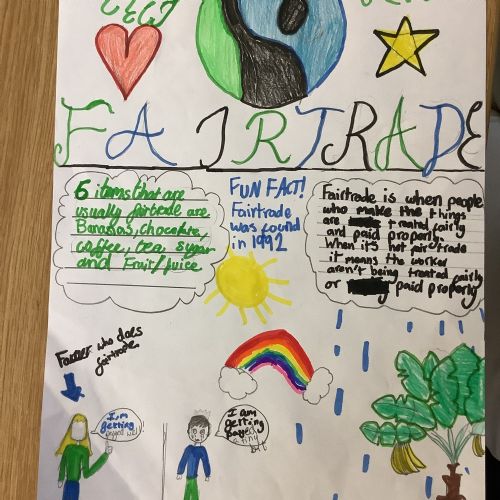 FAIRTRADE
6 items that are
usually fairtrade are
Bananas, chocolate,
coffee, tea, sugar
and Fruit/juice
FUN FACT!
Fairtrade
was found
in 1992
Fairtrade is when people
who make the things
are treated fairly
and paid properly
When it's not fairtrade
it means the worker
aren't being treated fairly
or paid properly
Farmer who does
fairtrade
I'm
getting
payed well
I am
getting
payed
tiny